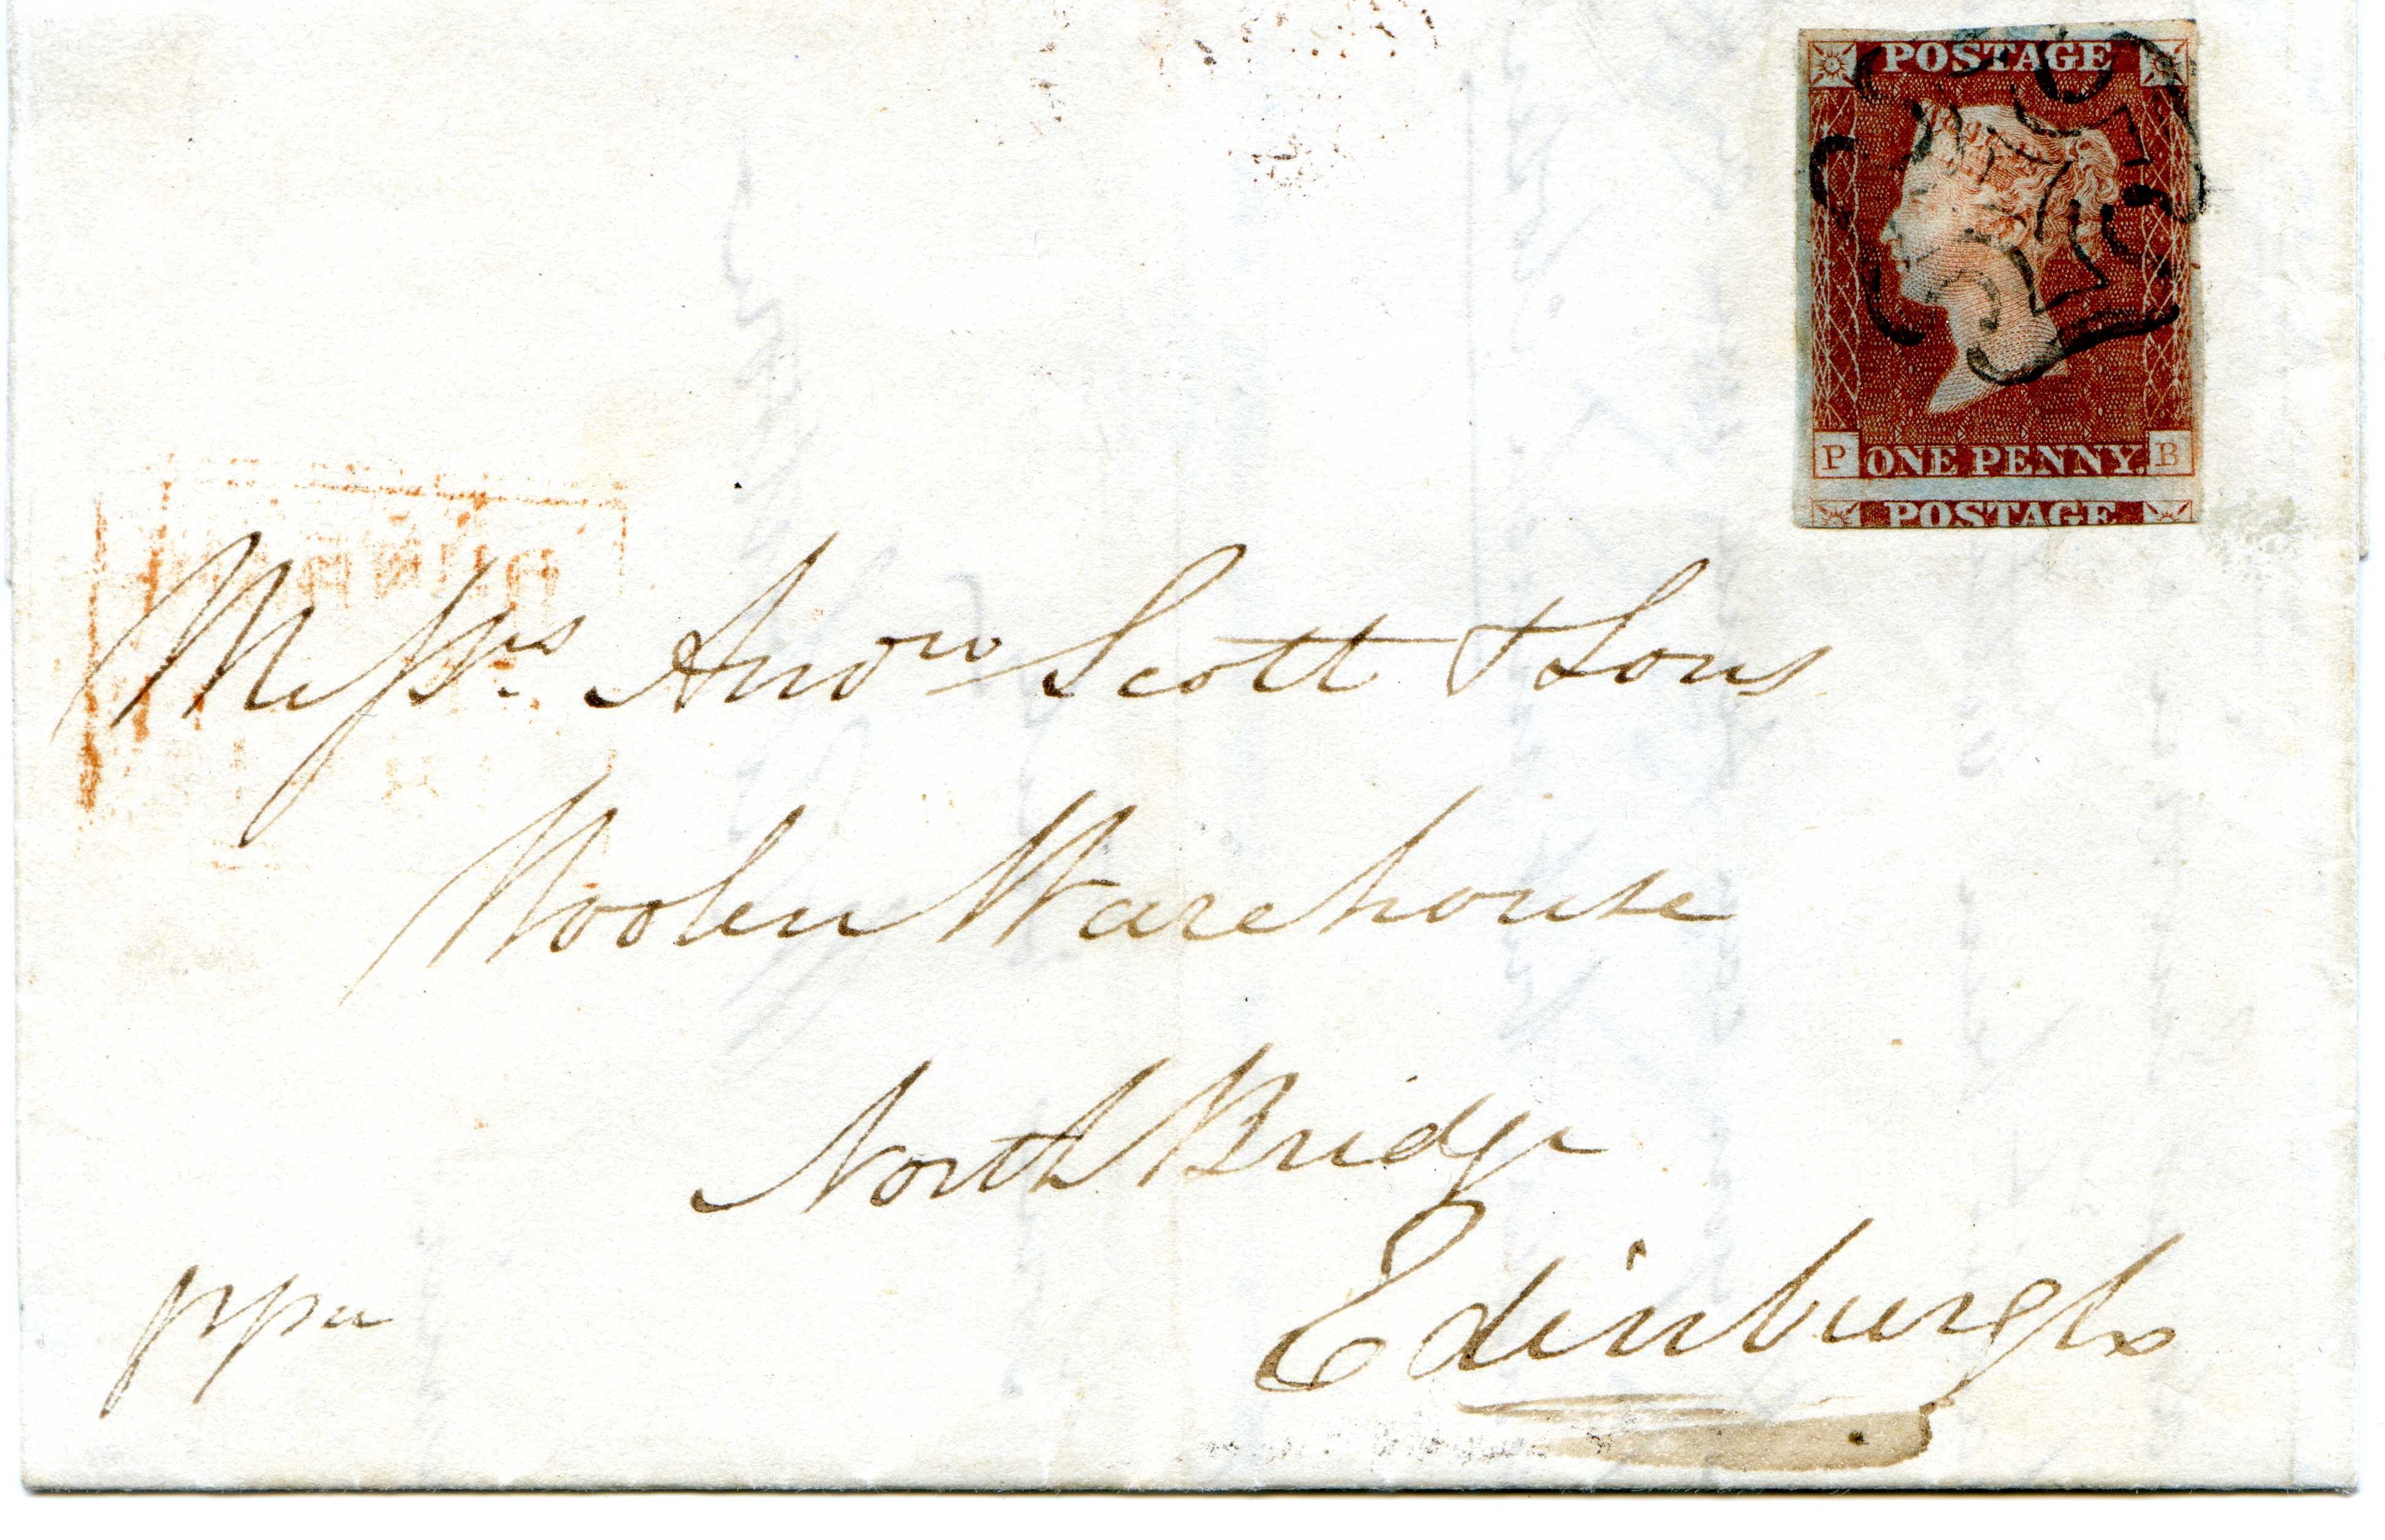 POSTAGE
P ONE PENNY. B
POSTAGE
Messrs. Andw Scott & Sons
Woolen Warehouse
North Bridge
Edinburgh